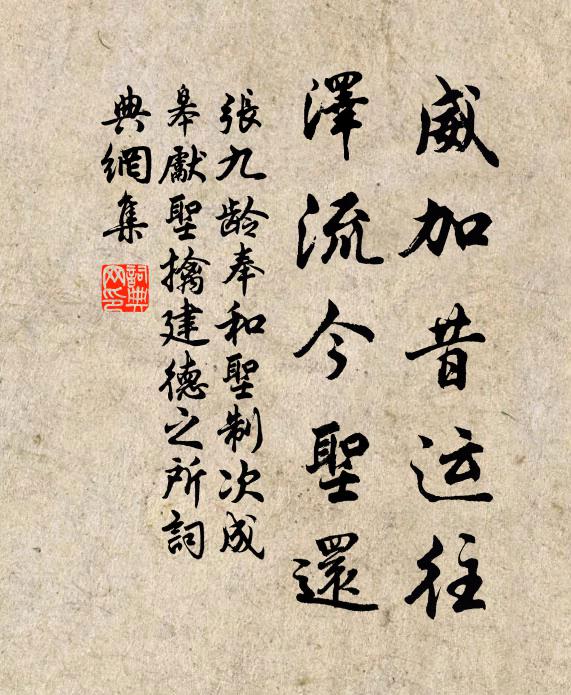 威加昔运往
澤流今聖還
張九龄奉和聖制次成
皋獻聖擒建德之所詞
典網集
詞典网印